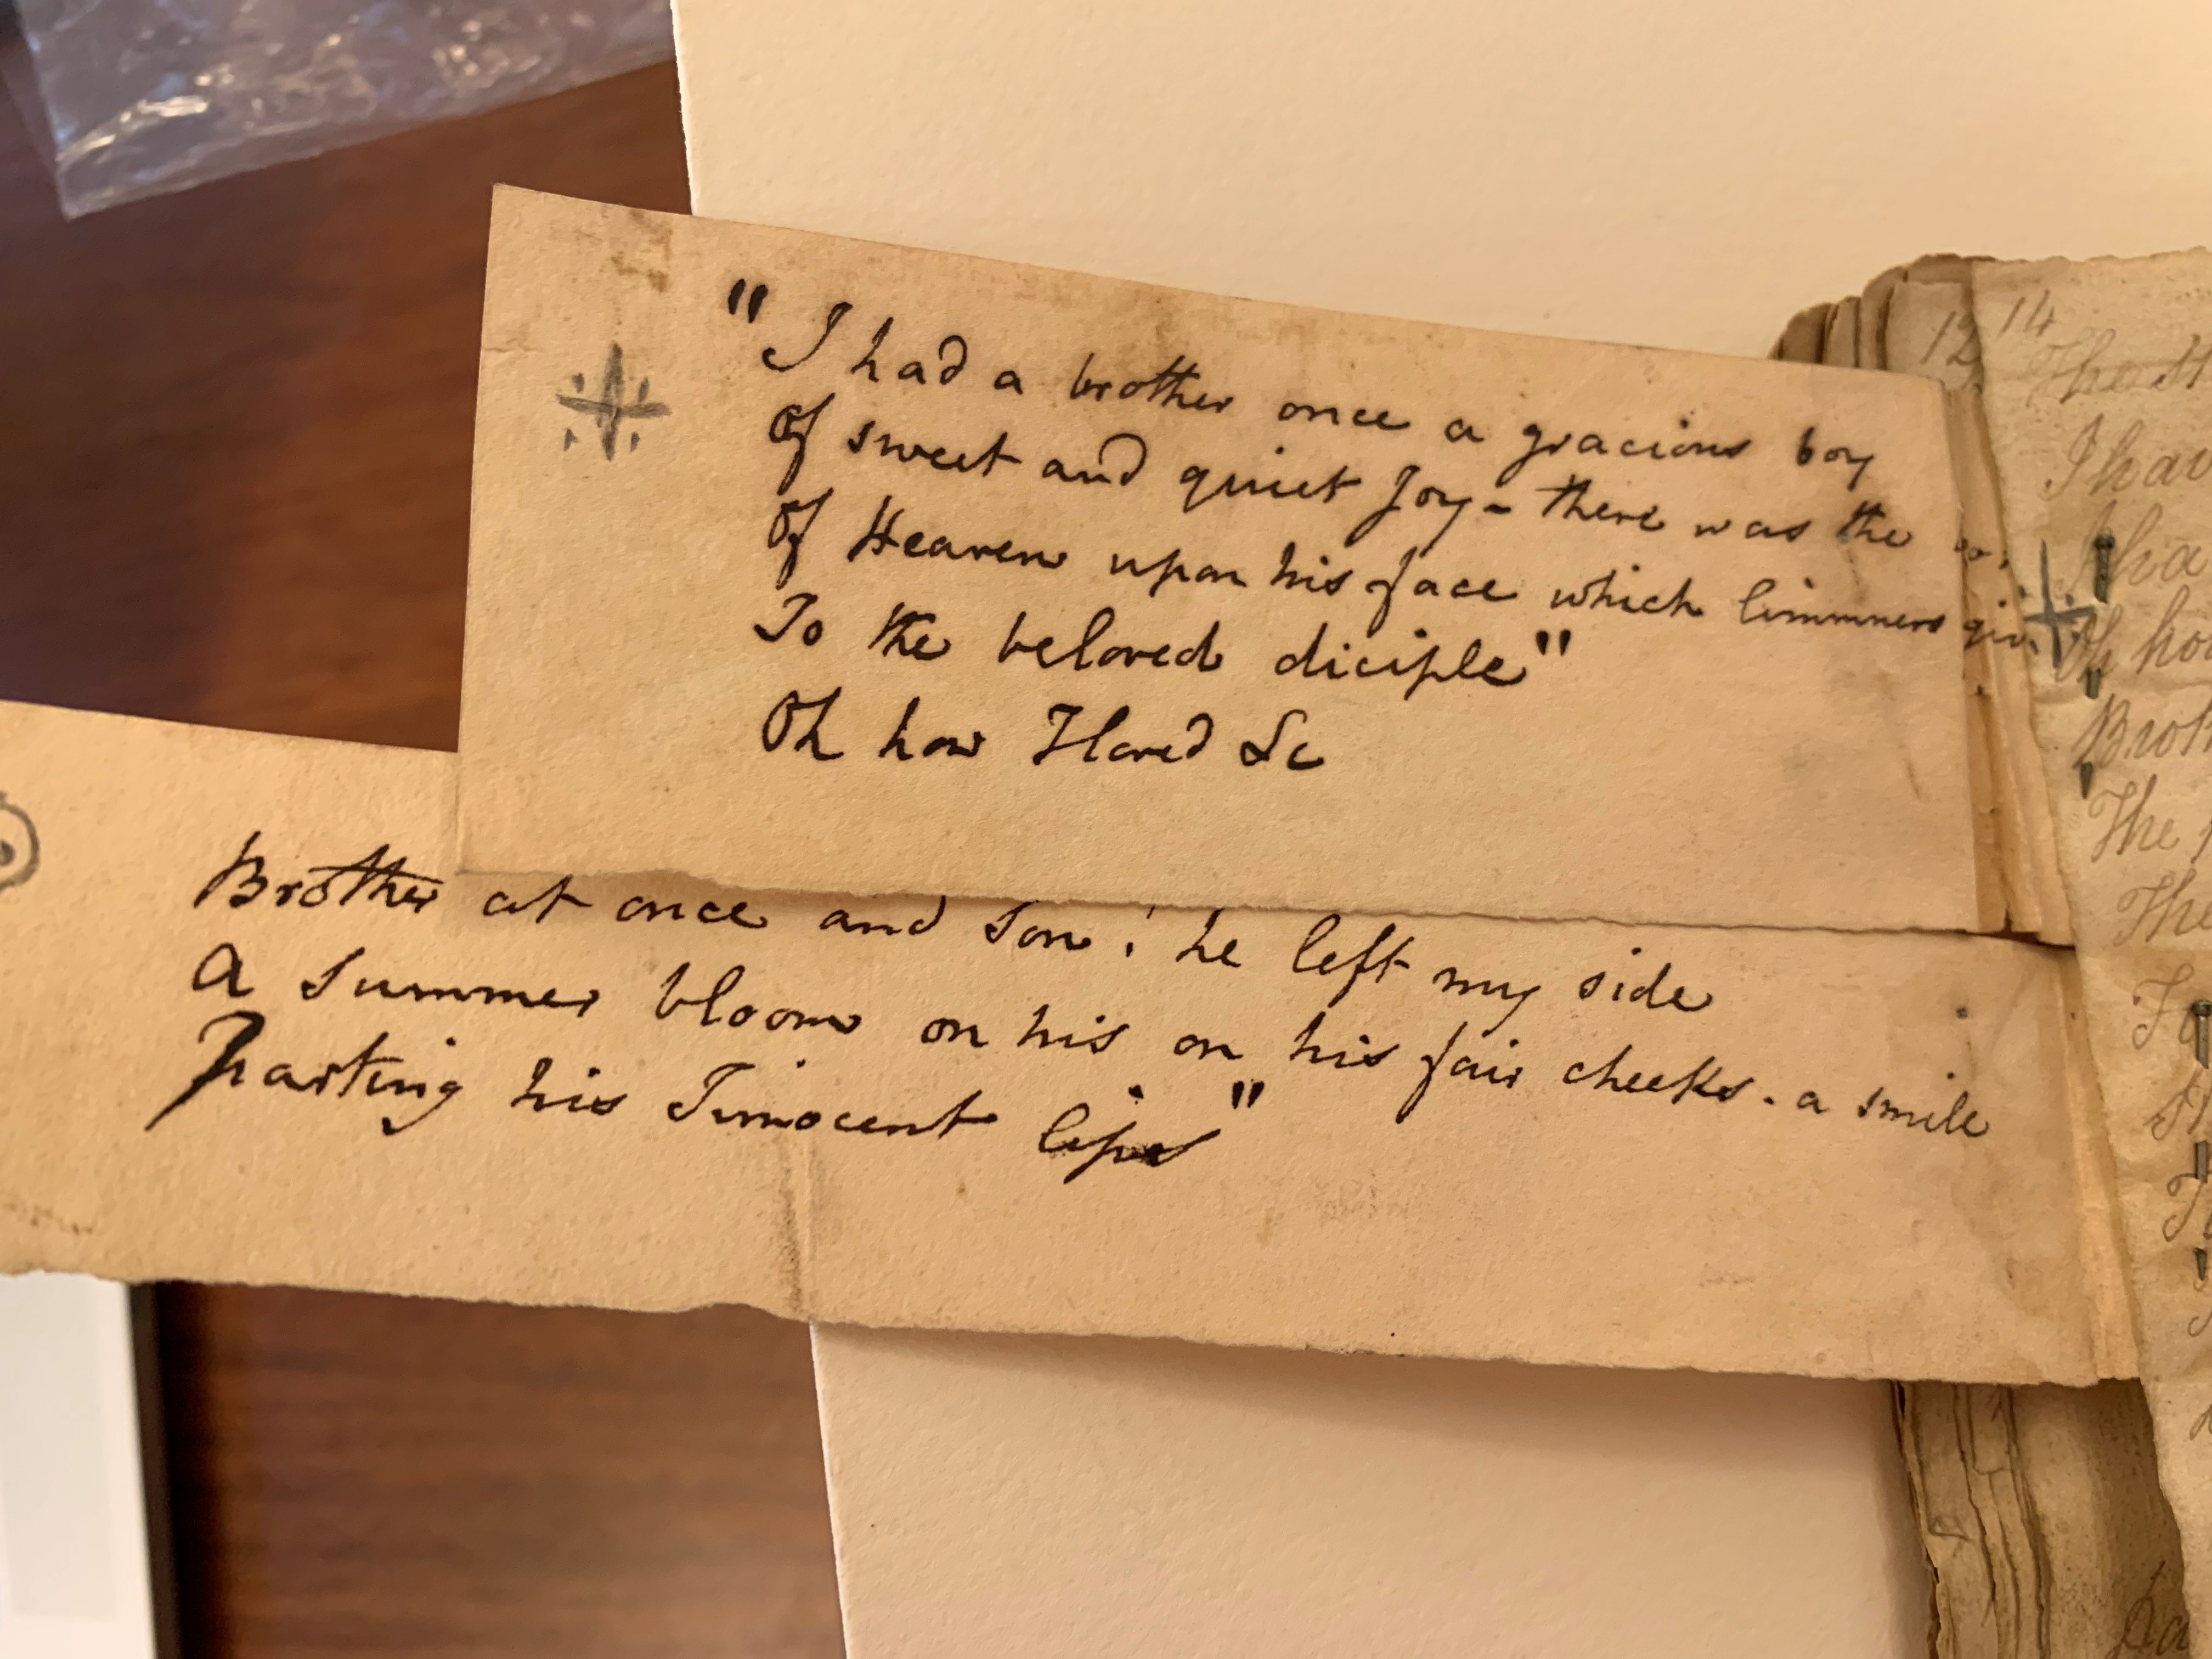 "I had a brother once a gracious boy
Of sweet and quiet Joy - there was the
Of Heaven upon his face which limmners
To the beloved diciple"
Oh how I loved &c
Brother at once and son! he left my side
A summer bloom on his on his fair cheeks. a smile
Parting his Innocent lips"
12
14
The
I hav
Oh ho
Broth
The
The